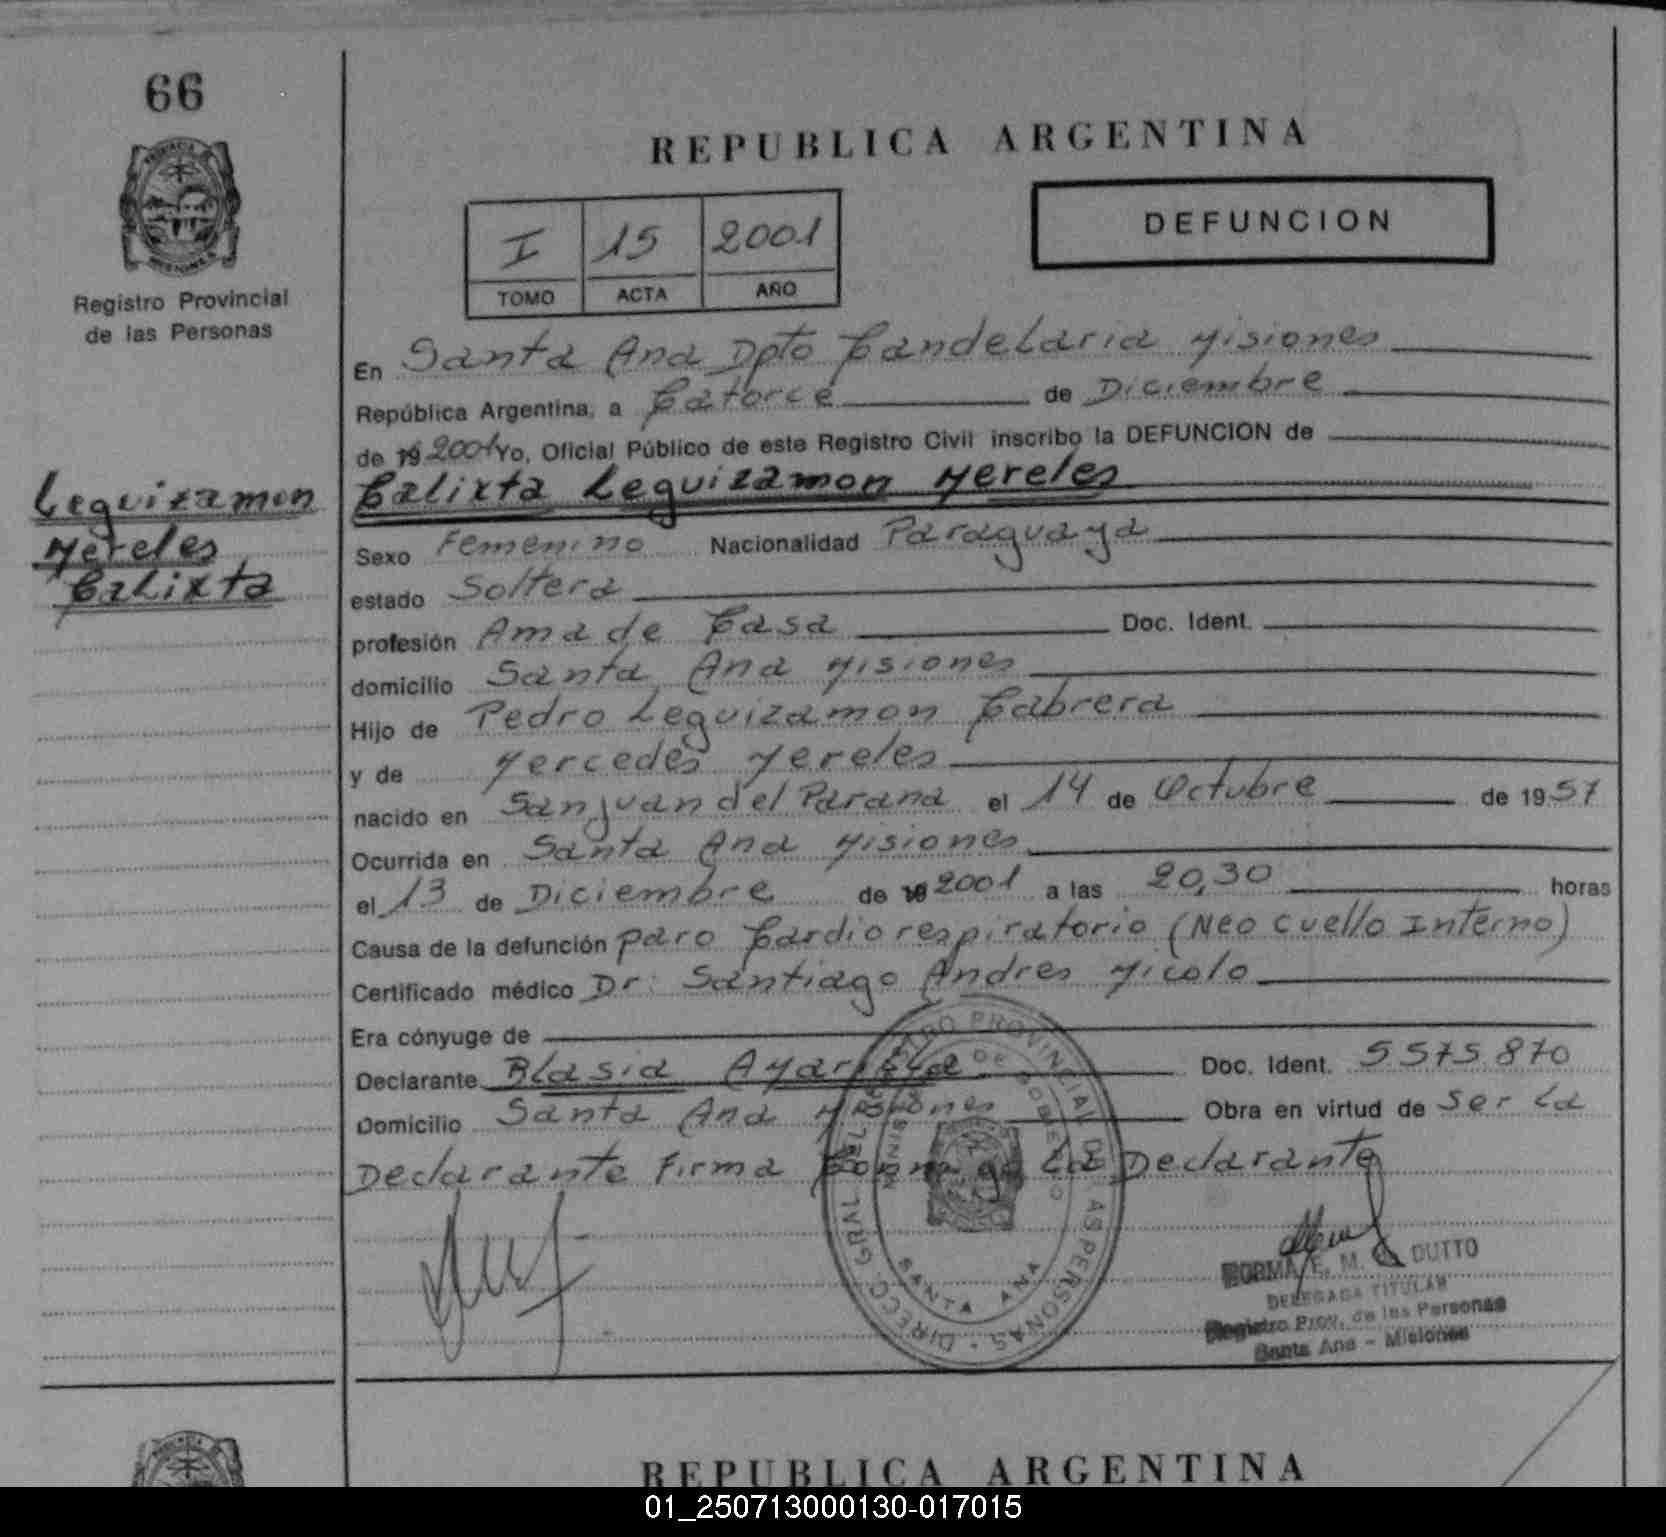 66
Registro Provincial
de las Personas
Leguizamon
Mereles
Calixta
REPUBLICA ARGENTINA
DEFUNCION
I 15 2001
TOMO ACTA AÑO
En Santa Ana Dpto Candelaria Misiones
República Argentina, a Catorce de Diciembre
de 19 2001 Yo, Oficial Público de este Registro Civil inscribo la DEFUNCION de
Calixta Leguizamon Mereles
Sexo Femenino Nacionalidad Paraguaya
estado Soltera
profesión Ama de Casa Doc. Ident.
domicilio Santa Ana Misiones
Hijo de Pedro Leguizamon Cabrera
y de Mercedes Mereles
nacido en San Juan del Parana el 14 de Octubre de 1957
Ocurrida en Santa Ana Misiones
el 13 de Diciembre de 19 2001 a las 20,30 horas
Causa de la defunción paro Cardiorespiratorio (Neo cuello Interno)
Certificado médico Dr: Santiago Andres Micolo
Era cónyuge de
Declarante Blasia Ayar
Doc. Ident. 5575.870
Domicilio Santa Ana Misiones Obra en virtud de Ser la
Declarante Firma Conmigo la Declarante
DIRECC. GRAL DEL REGISTRO PROVINCIAL DE LAS PERSONAS
MINISTERIO DE GOBIERNO
SANTA ANA
NORMA E. M. DUTTO
DELEGADA TITULAR
Registro Prov. de las Personas
Santa Ana - Misiones
REPUBLICA ARGENTINA
01_250713000130-017015